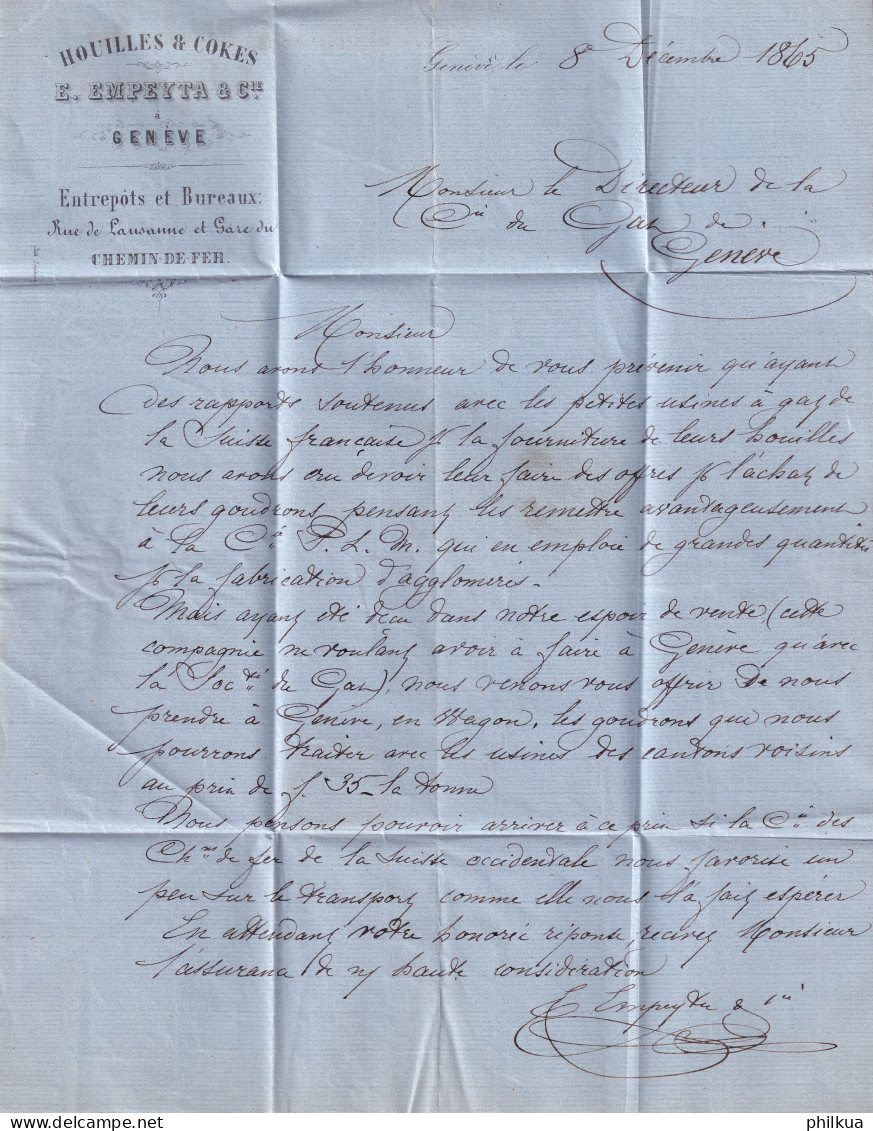 HOUILLES & COKES
E. EMPEYTA & CIE.
à
GENÈVE
Entrepôts et Bureaux:
Rue de Lausanne et Gare du
CHEMIN-DE-FER.
Genève, le 8 Décembre 1865
Monsieur le Directeur de la
Cie du Gaz de
Genève
Monsieur
Nous avons l'honneur de vous prévenir qu'ayant
des rapports soutenus avec les petites usines à gaz de
la Suisse française pr la fourniture de leurs houilles
nous avons cru devoir leur faire des offres pr l'achat de
leurs goudrons, pensant les remettre avantageusement
à la Cie P. L. M. qui en emploie de grandes quantités
pr la fabrication d'agglomérés.
Mais ayant été déçu dans notre espoir de vente, (cette
compagnie ne voulant avoir à faire à Genève qu'avec
la Socté du Gaz), nous venons vous offrir de nous
prendre à Genève, en Wagon, les goudrons que nous
pourrons traiter avec les usines des cantons voisins
au prix de f. 35 la tonne
Nous pensons pouvoir arriver à ce prix si la Cie des
Chins de fer de la Suisse occidentale nous favorise un
peu sur le transport comme elle nous l'a fait espérer
En attendant votre honorée réponse, recevez Monsieur
l'assurance de n/ haute considération
E. Empeyta & Cie
philkua